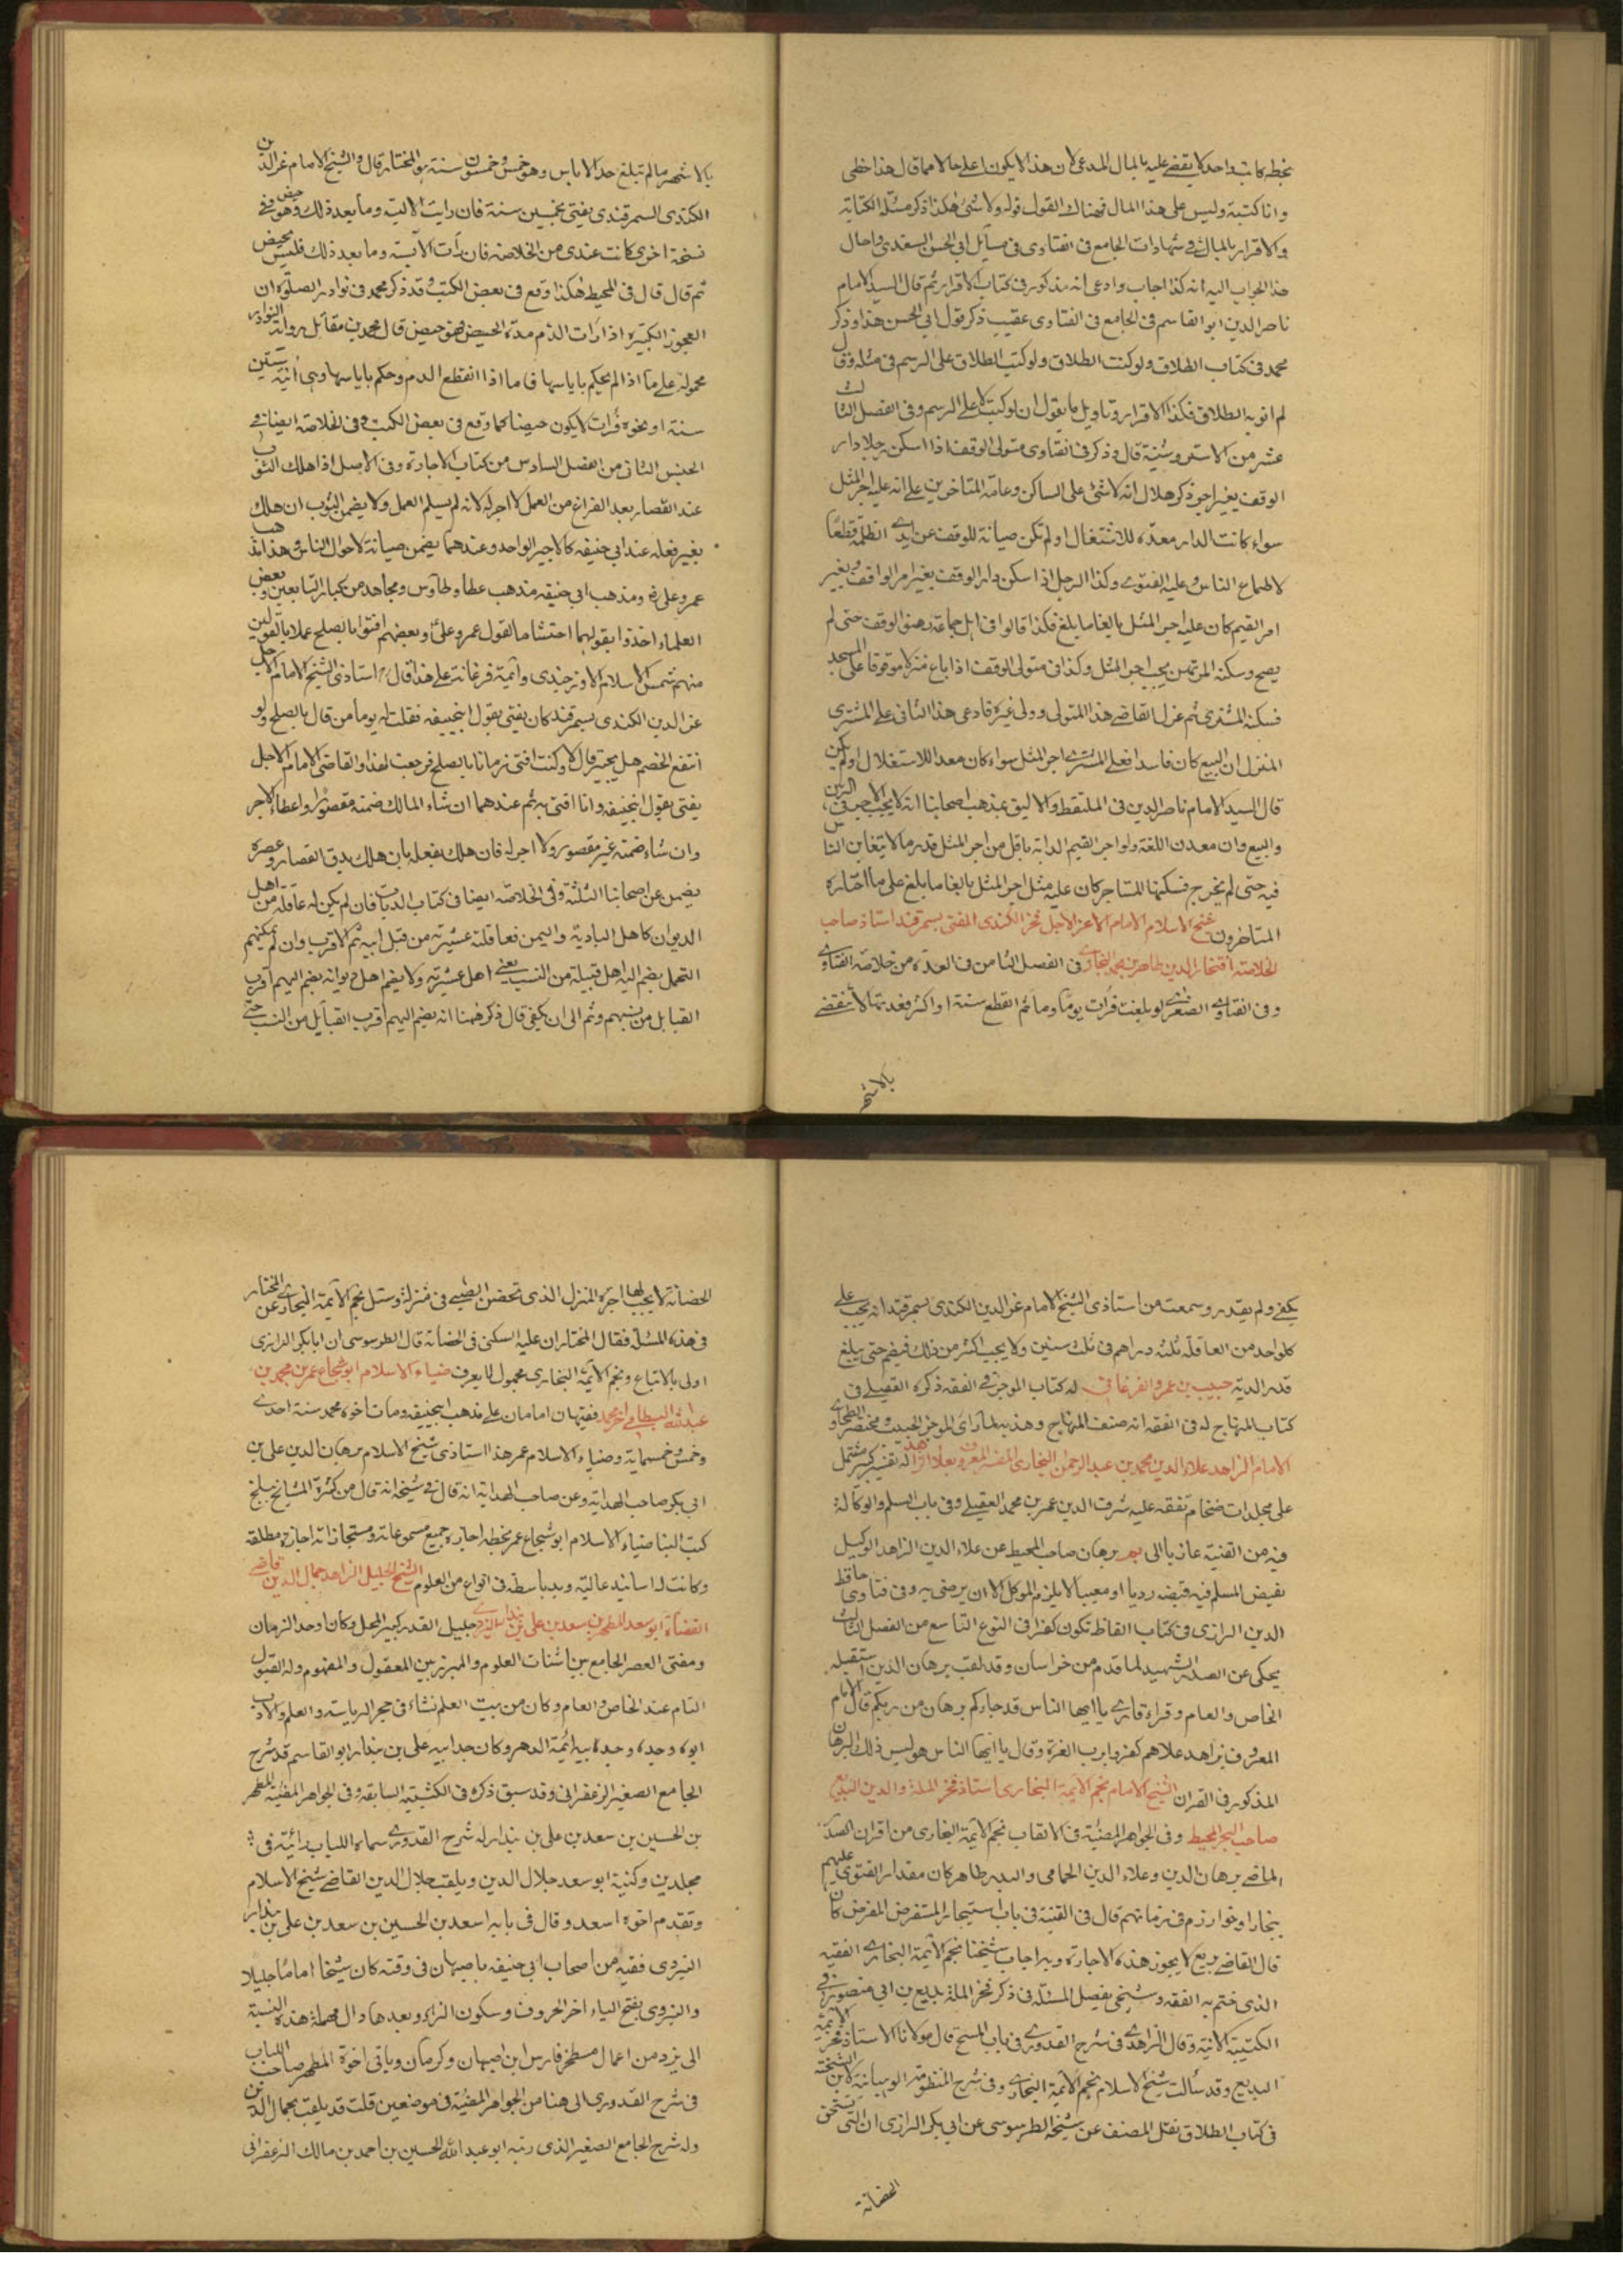 بخطه كاتب واحد لا يقضى عليه بالمال المدعى لان هذا لا يكون اعلى حالا مما قال هذا خطى
وانا كتبته وليس على هذا المال فهناك القول قوله ولا شئ هكذا ذكر مسئلة الكتابة
والاقرار بالمال فى شهادات الجامع فى الفتاوى فى مسائل ابى الحسن السغدى واحال
هذا الجواب اليه انه كذا اجاب وادعى انه مذكور فى كتاب الاقرار ثم قال السيد الامام
ناصر الدين ابو القاسم فى الجامع فى الفتاوى عقيب ذكر قول ابى الحسن هذا وذكر
محمد فى كتاب الطلاق ولو كتب الطلاق ولو كتب الطلاق على الرسم فى مثله وقال
لم انو به الطلاق فكذا الاقرار وتاويل ما يقول ان لو كتب لا على الرسم وفى الفصل الثالث
عشر من الاستروشنية قال وذكر فى الفتاوى متولى الوقف اذا اسكن رجلا دار
الوقف بغير اجر ذكر هلال انه لا شئ على الساكن وعامة المتاخرين على انه عليه اجر المثل
سواء كانت الدار معدة للاشتغال او لم تكن صيانة للوقف عن ايدى الظلمة وقطعا
لاطماع الناس وعليه الفتوى وكذا الرجل اذا سكن دار الوقف بغير امر الواقف وبغير
امر القيم كان عليه اجر المثل بالغا ما بلغ فكذا قالوا فى اهل جماعة رهنوا الوقف حتى لم
يصح وسكنه المرتهن يجب اجر المثل وكذا فى متولى الوقف اذا باع منزلا موقوفا على المسجد
فسكنه المشترى ثم عزل القاضى هذا المتولى وولى غيره فادعى هذا الثانى على المشترى
المنزل ان البيع كان فاسدا فعلى المشترى اجر المثل سواء كان معدا للاستغلال او لم يكن
قال السيد الامام ناصر الدين فى الملتقط والاليق بمذهب اصحابنا انه لا يجب الاجر فى الرهن
والبيع وان معدن اللغة ولو اجر القيم الدابة باقل من اجر المثل قدر ما لا يتغابن الناس
فيه حتى لم يخرج فسكنها المستاجر كان عليه مثل اجر المثل بالغا ما بلغ على ما اختاره
المتاخرون شيخ الاسلام الامام الاعز الاجل عز الكندى المفتى بسمرقند استاذ صاحب
الخلاصة افتخار الدين طاهر بن محمد البخارى فى الفصل الثامن فى العدة من خلاصة الفتاوى
وفى الفتاوى الصغرى لو بلغت فرات يوما دما ثم انقطع سنة او اكثر فعدتها لا تنقضى
بالاشهر
بالاشهر ما لم تبلغ حد الاياس وهو خمس وخمسون سنة هو المختار قال والشيخ الامام عز الدين
الكندى السمرقندى يفتى بخمسين سنة فان رايت الآيسة وما بعد ذلك فهو حيض وفى
نسخة اخرى كانت عندى من الخلاصة فان رات الآيسة وما بعد ذلك فليس بحيض
ثم قال قال فى المحيط هكذا وقع فى بعض الكتب وقد ذكر محمد فى نوادر الصلوة ان
العجوز الكبيرة اذا رات الدم مدة الحيض فهو حيض قال محمد بن مقاتل رواية النوادر
محمولة على ما اذا لم يحكم باياسها فاما اذا انقطع الدم وحكم باياسها وهى ابنة ستين
سنة او نحوه فرات لا يكون حيضا كما وقع فى بعض الكتب وفى الخلاصة ايضا فى
الجنس الثانى من الفصل السادس من كتاب الاجارة وفى الاصل اذا هلك الثوب
عند القصار بعد الفراغ من العمل لا اجر له لانه لم يسلم العمل ولا يضمن الثوب ان هلك
بغير فعله عند ابى حنيفه كالاجير الواحد وعندهما يضمن صيانة لاحوال الناس وهذا مذهب
عمر وعلى رض ومذهب ابى حنيفه مذهب عطا وطاوس ومجاهد من كبار التابعين وبعض
العلماء اخذوا بقولهما احتشاما لقول عمر وعلى وبعضهم افتوا بالصلح عملا بالقولين
منهم شمس الاسلام الاوزجندى وائمة فرغانة على هذا قال استاذى الشيخ الامام الاجل
عز الدين الكندى بسمرقند كان يفتى بقول ابى حنيفه فقلت له يوما من قال بالصلح ولو
انتفع الخصم هل يجبر قال لا وكنت افتى زمانا بالصلح فرجعت لهذا والقاضى الامام الاجل
يفتى بقول ابى حنيفه وانا افتى به ثم عندهما ان شاء المالك ضمنه مقصورا واعطاه الاجر
وان شاء ضمنه غير مقصور ولا اجر له فان هلك بفعله بان هلك بدق القصار وعصره
يضمن عن اصحابنا الثلثة وفى الخلاصة ايضا فى كتاب الديات فان لم يكن له عاقلة من اهل
الديوان كاهل البادية واليمن فعاقلته عشيرته من قبل ابيه ثم الاقرب وان لم يمكنهم
التحمل يضم اليه اهل قبيلة من النسب يعنى اهل عشيرته ولا يضم اهل ديوانه يضم اليهم اقرب
القبايل من نسبهم وثم الى ان يكفى قال ذكر ههنا انه يضم اليهم اقرب القبايل من النسب حتى
يكفى ولم يقدر وسمعت من استاذى الشيخ الامام عز الدين الكندى بسمرقند انه يجب على
كل واحد من العاقلة ثلثة دراهم فى ثلث سنين ولا يجب اكثر من ذلك فيضم حتى يبلغ
قدر الدية حبيب بن عمرو الفرغانى له كتاب الموجز فى الفقه ذكره العقيلى فى
كتاب المنهاج له فى الفقه انه صنف المنهاج وهذبه لما راى الموجز لحبيب ومختصر الطحاوى
الامام الزاهد علاء الدين محمد بن عبد الرحمن البخارى المفسر المعروف بعلاء الزاهد له تفسير كبير مشتمل
على مجلدات ضخام تفقه عليه شرف الدين عمر بن محمد العقيلى وفى باب السلم والوكالة
فيه من القنية عازيا الى بم برهان صاحب المحيط عن علاء الدين الزاهد الوكيل
بقبض المسلم فيه قبضه رديا او معيبا لا يلزم الموكل الا ان يرضى به وفى فتاوى حافظ
الدين الرازى فى كتاب الفاظ تكون كفرا فى النوع التاسع من الفصل الثالث
يحكى عن الصدر الشهيد لما قدم من خراسان وقد لقب برهان الدين استقبله
الخاص والعام وقراء قارى يا ايها الناس قد جاءكم برهان من ربكم قال الامام
المعروف بزاهد علاهم كفروا برب العزة وقال يا ايها الناس هو ليس ذلك البرهان
المذكور فى القران الشيخ الامام نجم الائمة البخارى استاذ فخر الملة والدين البديع
صاحب البحر المحيط وفى الجواهر المضيئة فى الالقاب نجم الائمة البخارى من اقران الصدر
الماضى برهان الدين وعلاء الدين الحمامى والبدر طاهر كان مقدار الفتوى عليهم
ببخارا وخوارزم فى زمانهم قال فى القنية فى باب استيجار المستقرض المقرض كان
قال القاضى بديع لا يجوز هذه الاجارة وبه اجاب شيخنا نجم الائمة البخارى الفقيه
الذى ختم به الفقه وسيجئ تفصيل المسئلة فى ذكر فخر الملة بديع بن ابى منصور فى
الكتيبة الآتية وقال الزاهدى فى شرح القدورى فى باب المسح قال مولانا الاستاذ فخر الائمة
البديع وقد سالت شيخ الاسلام نجم الائمة البخارى وفى شرح المنظومة الوهبانية لابن الشحنة
فى كتاب الطلاق نقل المصنف عن شيخه الطرسوسى عن ابى بكر الرازى ان التى تستحق
الحضانة
الحضانة لا يجب لها اجرة المنزل الذى تحضن الصبى فى منزله وسئل نجم الائمة البخارى عن المختار
فى هذه المسئلة فقال المختار ان عليه السكنى فى الحضانة قال الطرسوسى ان ابا بكر الرازى
اولى بالاتباع ونجم الائمة البخارى مجهول لا يعرف ضياء الاسلام ابو شجاع عمر بن محمد بن
عبد الله البسطامى اخو محمد فقيهان امامان على مذهب ابى حنيفه ومات اخوه محمد سنة احدى
وخمس وخمسماية وضياء الاسلام عمر هذا استاذى شيخ الاسلام برهان الدين على بن
ابى بكر صاحب الهداية وعن صاحب الهداية انه قال فى مشيخاته قال من كثرة المشايخ ببلخ
كتب الينا ضياء الاسلام ابو شجاع عمر بخطه اجازة جميع مسموعاته ومستجازاته اجازة مطلقة
وكانت له اسانيد عالية ويد باسطة فى انواع من العلوم الشيخ الجليل الزاهد جمال الدين قاضى
القضاة ابو سعد المطهر بن سعد بن على بن بندار اليزدى جليل القدر كبير المحل وكان اوحد الزمان
ومفتى العصر الجامع بين اشتات العلوم والمبرز بين المعقول والمفهوم وله القبول
التام عند الخاص والعام وكان من بيت العلم نشاء فى حجر الرياسة والعلم والادب
ابوه وجده وجد ابيه ائمة الدهر وكان جد ابيه على بن بندار ابو القاسم قد شرح
الجامع الصغير الزعفرانى وقد سبق ذكره فى الكتيبة السابقة وفى الجواهر المضيئة المطهر
بن الحسين بن سعد بن على بن بندار له شرح القدورى سماه اللباب رائيته فى
مجلدين وكنيته ابو سعد جلال الدين ويلقب جلال الدين القاضى شيخ الاسلام
وتقدم اخوه اسعد وقال فى بابه اسعد بن الحسين بن سعد بن على بن بندار
اليزدى فقيه من اصحاب ابى حنيفه باصبهان فى وقته كان شيخا اماما جليلا
واليزدى بفتح الياء اخر الحروف وسكون الزاء وبعدها دال مهملة هذه النسبة
الى يزد من اعمال اصطخر فارس ابن اصبهان وكرمان وياتى اخوة المطهر صاحب اللباب
فى شرح القدورى الى هنا من الجواهر المضيئة فى موضعين قلت قد يلقب بجمال الدين
وله شرح الجامع الصغير الذى رتبه ابو عبد الله الحسين بن احمد بن مالك الزعفرانى